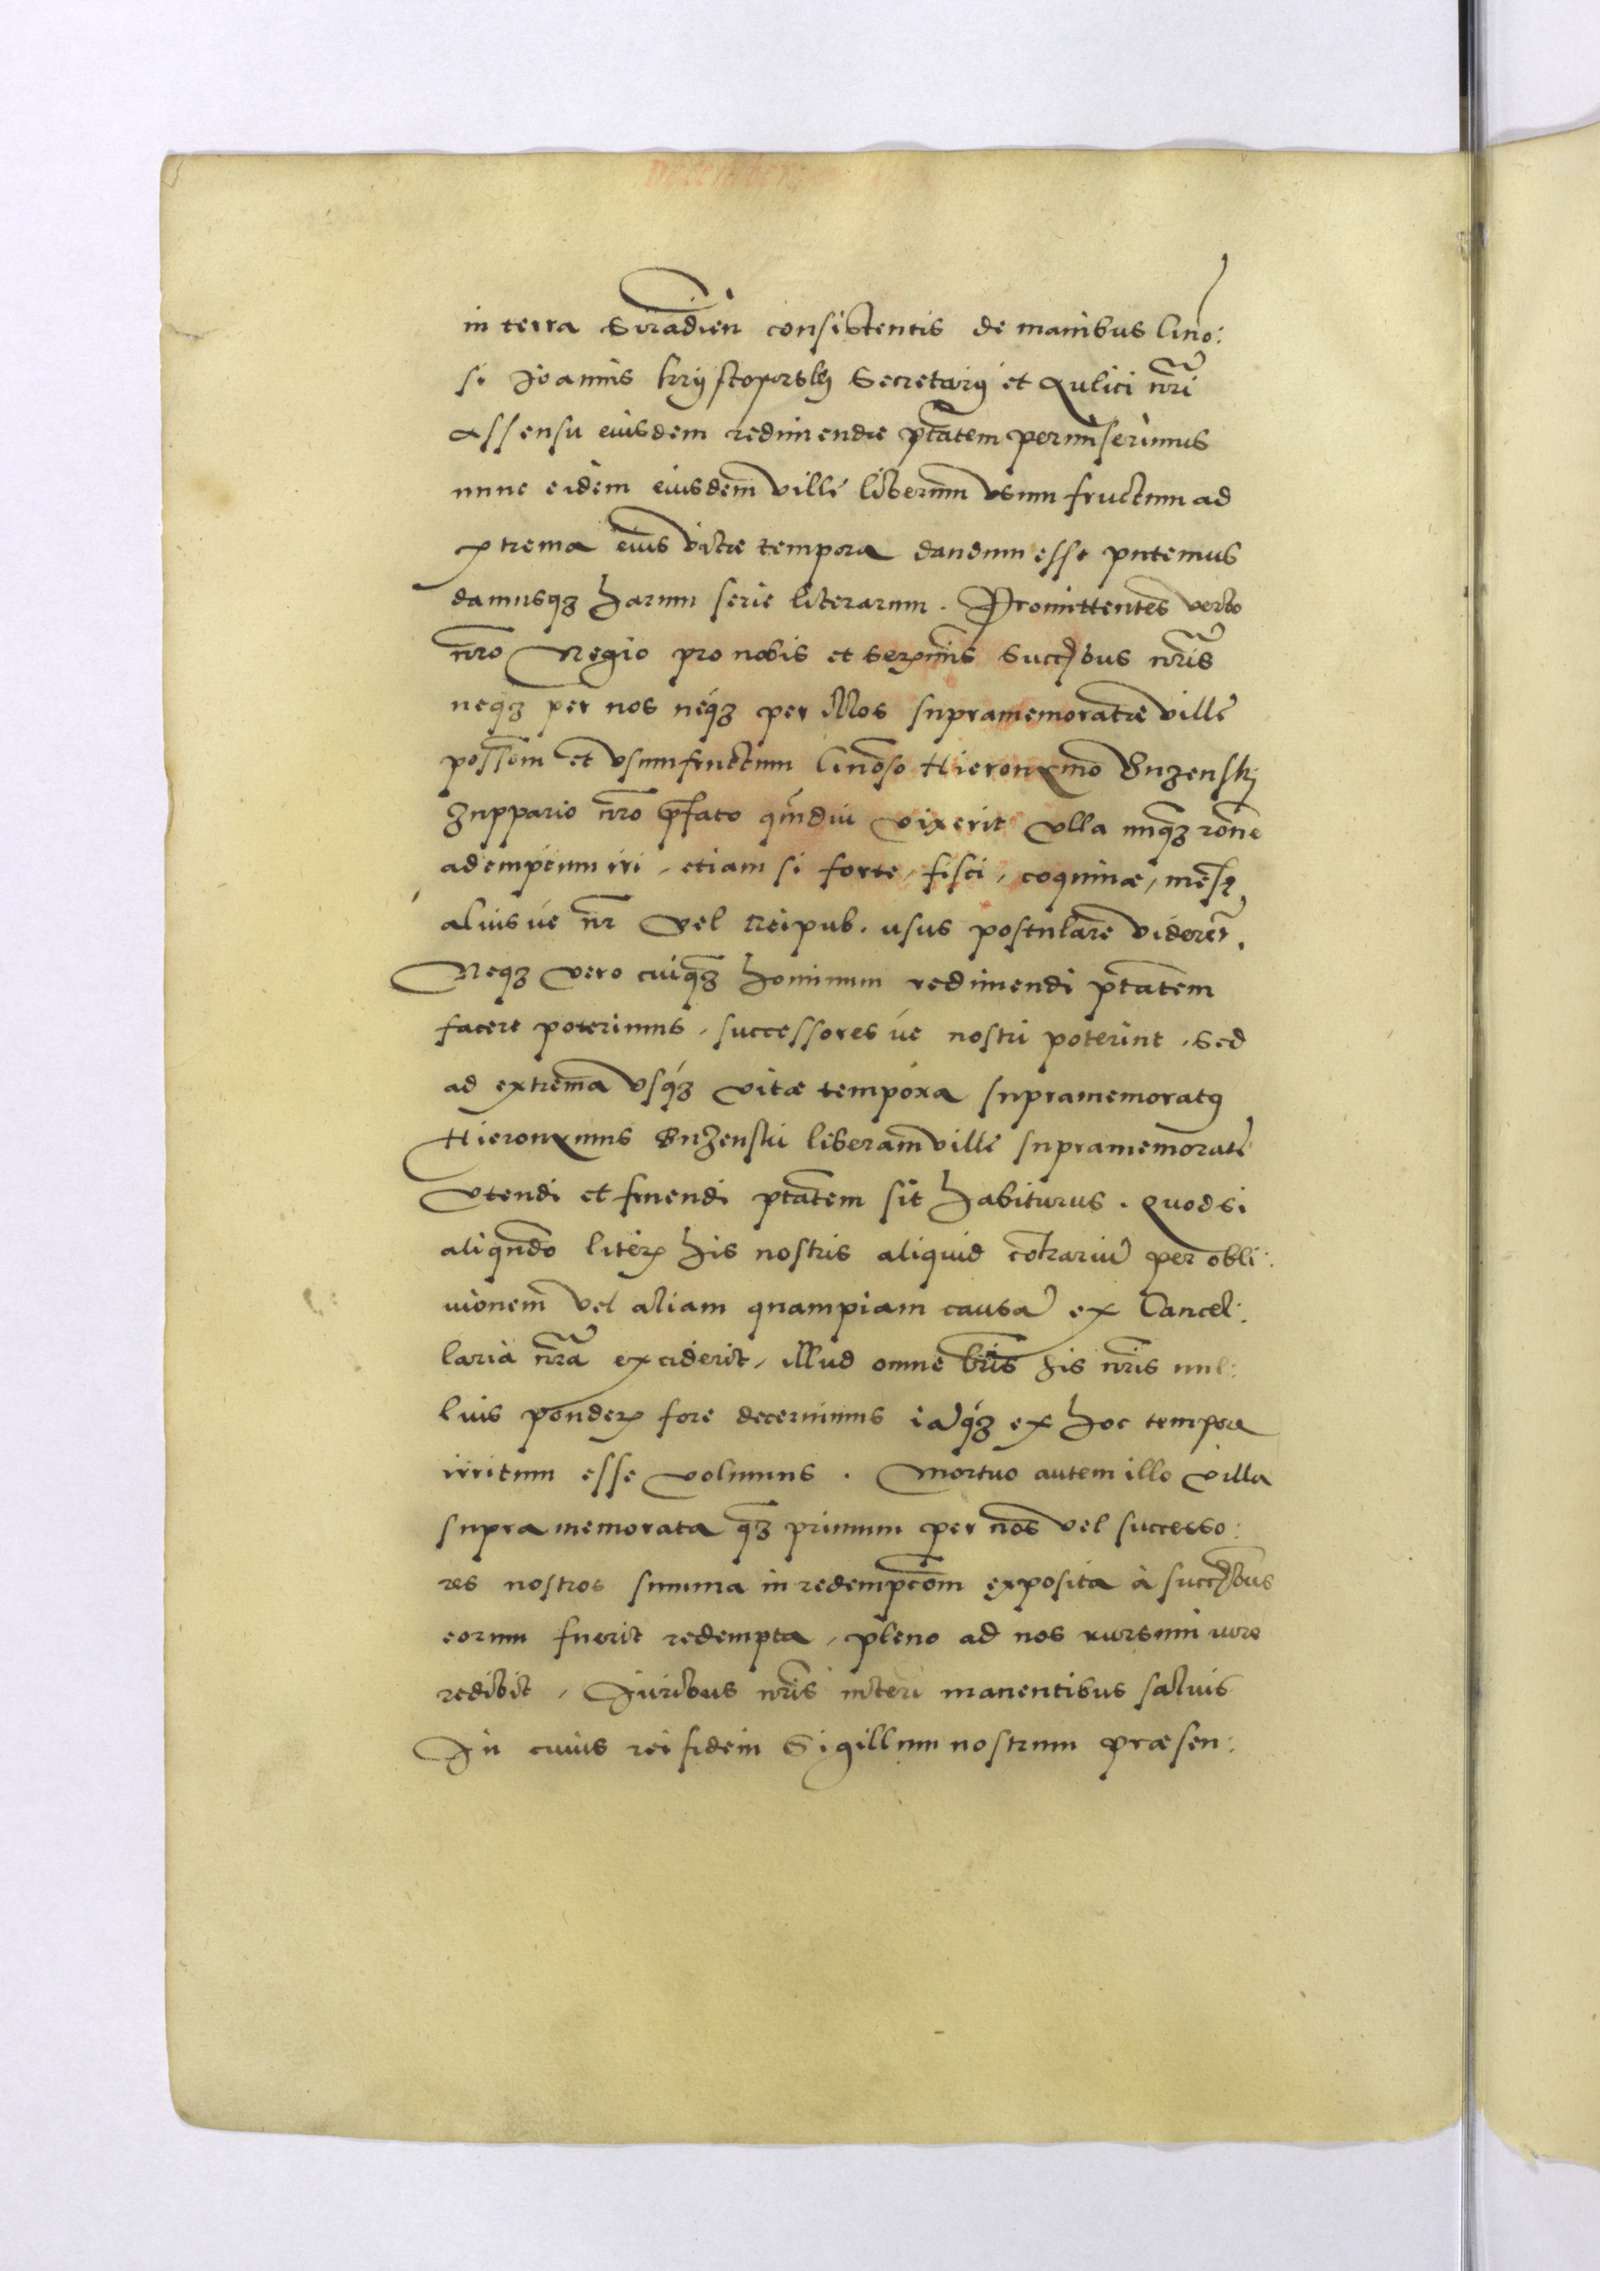 in terra Siradien̄ consistentis de manibus Gn̄o:
si Joannis Krzysstoporskÿ Secretarÿ et Aulici nr̄i
Assensu eiusdem redimendæ ptātem permiserimus
nunc eidem eiusdem villę liberum vsum fructum ad
extrema eius vitæ tempora dandum esse putemus
damusqȝ harum serie literarum. Promittentes verbo
nr̄o Regio pro nobis et Serenmis Succbus nr̄is
neqȝ per nos neqȝ per illos supramemoratæ villę
possem̄ et vsumfructum Gn̄oso Hieronymo Buzenskj
Zuppario nr̄o p̄fato qm̄diu vixerit vlla unqȝ rōne
ademptum iri, etiam si forte, fisci, coquinæ, mensę,
aliusve nr̄ vel Reipub. usus postulare videret̄.
Neqȝ vero cuiqȝ hominum redimendi ptātem
facere poterimus, successoresve nostri poterint, Sed
ad extrema vsqȝ vitæ tempora supramemoratꝰ
Hieronymus Buzenski liberam villę supramemoratę
vtendi et fruendi ptātem sit habiturus. Quod si
aliqn̄do literꝭ his nostris aliquid cōtrariū per obli:
uionem vel aliam quampiam causā ex Cancel:
laria nr̄a exciderit, illud omne lr̄is his nr̄is nul:
lius ponderꝭ fore decernimus iāqȝ ex hoc tempore
irritum esse volumus. Mortuo autem illo villa
supramemorata qȝ primum per nos vel successo:
res nostros summa in redempcōm exposita à succbus
eorum fuerit redempta, pleno ad nos rursum iure
redibit, Juribus nr̄is interī manentibus saluis
In cuius rei fidem Sigillum nostrum præsen: